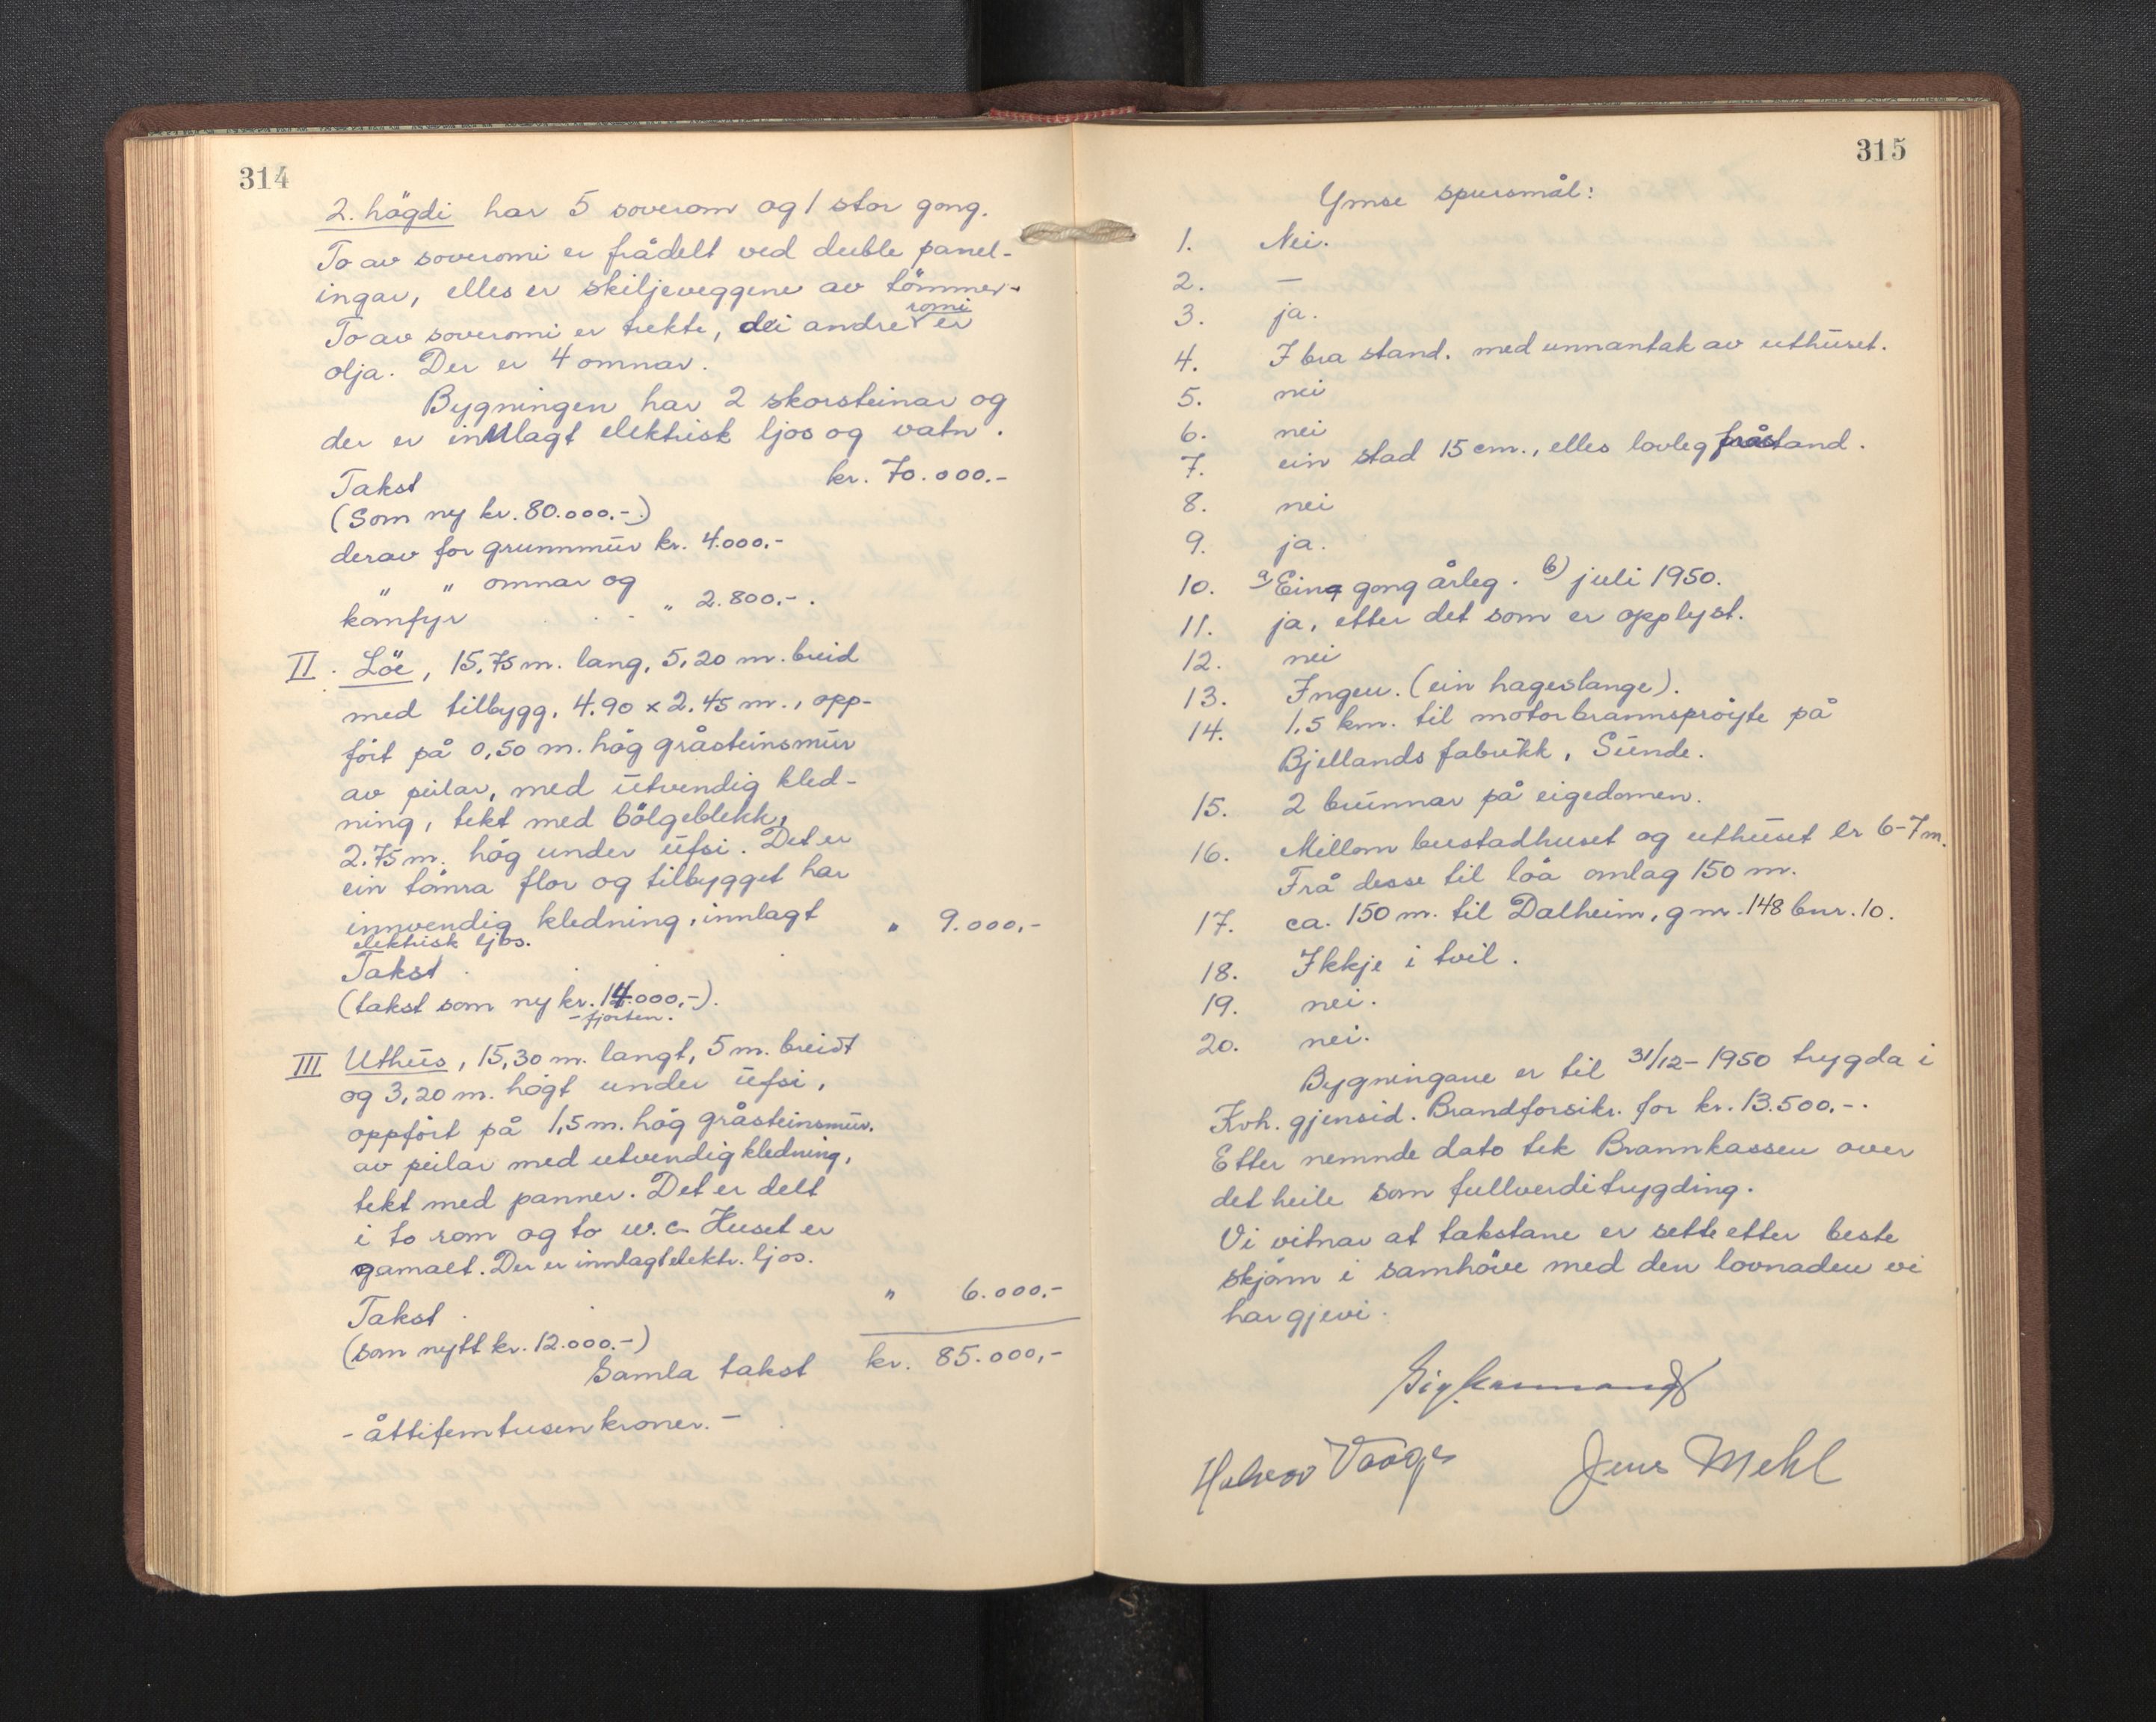 314
2. högdi har 5 soverom og 1 stor gong.
To av soveromi er frådelt ved duble panel-
ingar, elles er skiljeveggene av tömmer.
To av soveromi er trekte, dei andre romi er
olja. Der er 4 omnar.
Bygningen har 2 skorsteinar og
der er innlagt elektrisk ljos og vatn.
Takst kr. 70.000.-
(Som ny kr. 80.000.-)
derav for grunnmur kr. 4.000,-
" " omnar og
komfyr " 2.800,-.
II. Löe, 15,75 m. lang, 5,20 m. breid
med tilbygg, 4.90 x 2.45 m., opp-
fört på 0,50 m. hög gråsteinsmur
av peilar, med utvendig kled-
ning, tekt med bölgeblekk,
2.75 m. hög under ufsi. Det er
ein tömra flor og tilbygget har
innvendig kledning, innlagt
elektrisk ljos.
Takst " 9.000,-
(takst som ny kr. 14.000,-).
- fjorten.
III Uthus, 15,30 m. langt, 5 m. breidt
og 3,20 m. högt under ufsi,
oppfört på 1,5 m. hög gråsteinsmur.
av peilar med utvendig kledning,
tekt med panner. Det er delt
i to rom og to w.c. Huset er
gamalt. Der er innlagt elektr. ljos.
Takst " 6.000.-
(som nytt kr. 12.000.-)
Samla takst kr. 85.000,-
- åttifemtusen kroner. -
315
Ymse spursmål:
1. Nei.
2. —
3. ja.
4. I bra stand. med unnantak av uthuset.
5. nei
6. nei
7. ein stad 15 cm., elles lovleg fråstand.
8. nei
9. ja.
10. a) Ein gong årleg. b) juli 1950.
11. ja, etter det som er opplyst.
12. nei
13. Ingen. (ein hageslange).
14. 1,5 km. til motorbrannspröyte på
Bjellands fabrikk, Sunde.
15. 2 brunnar på eigedomen.
16. Millom bustadhuset og uthuset er 6-7 m.
Frå desse til löa omlag 150 m.
17. ca. 150 m. til Dalheim, gnr. 148 bnr. 10.
18. Ikkje i tvil.
19. nei.
20. nei.
Bygningane er til 31/12-1950 trygda i
Kvh. gjensid. Brandforsikr. for kr. 13.500.-.
Etter nemnde dato tek Brannkassen over
det heile som fullverditrygding.
Vi vitnar at takstane er sette etter beste
skjöm i samhöve med den lovnaden vi
har gjevi.
Halvor Vaage Jens Mehl